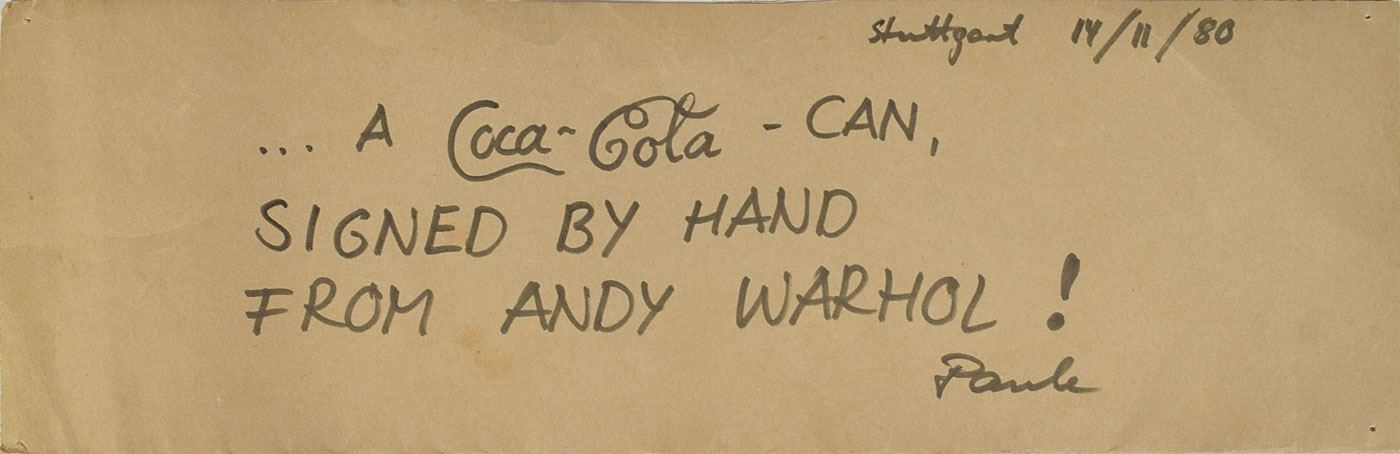 Stuttgart 14/11/80
... A Coca-Cola - CAN,
SIGNED BY HAND
FROM ANDY WARHOL !
Paule